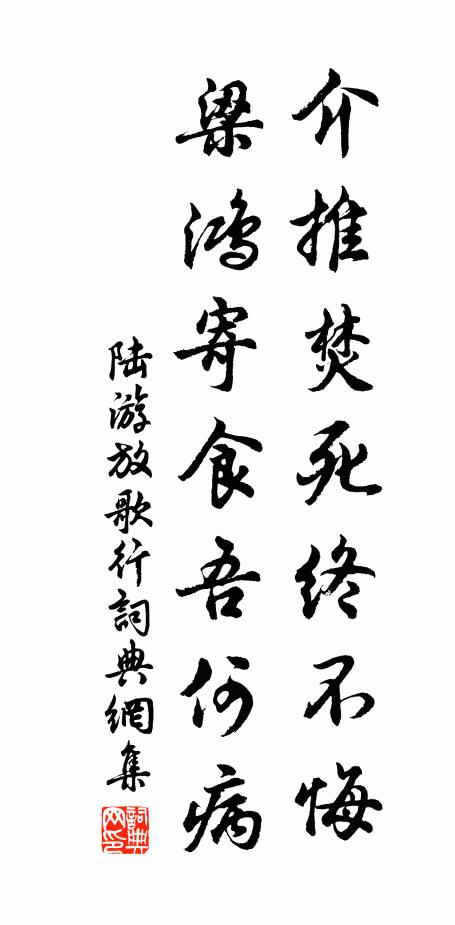 介推焚死终不悔
梁鸿寄食吾何病
陆游放歌行詞典網集
詞典網印